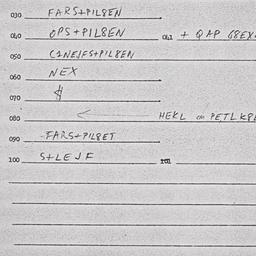 030 FARS+PIL8EN
040 OPS+PIL8EN 041 + QAP G8EX
050 C1NEJFS+PIL8EN
060 NEX
070 $
080 ← HEKL on PETLKPL
090 -FARS+PIL8ET
100 S+LEJF 101